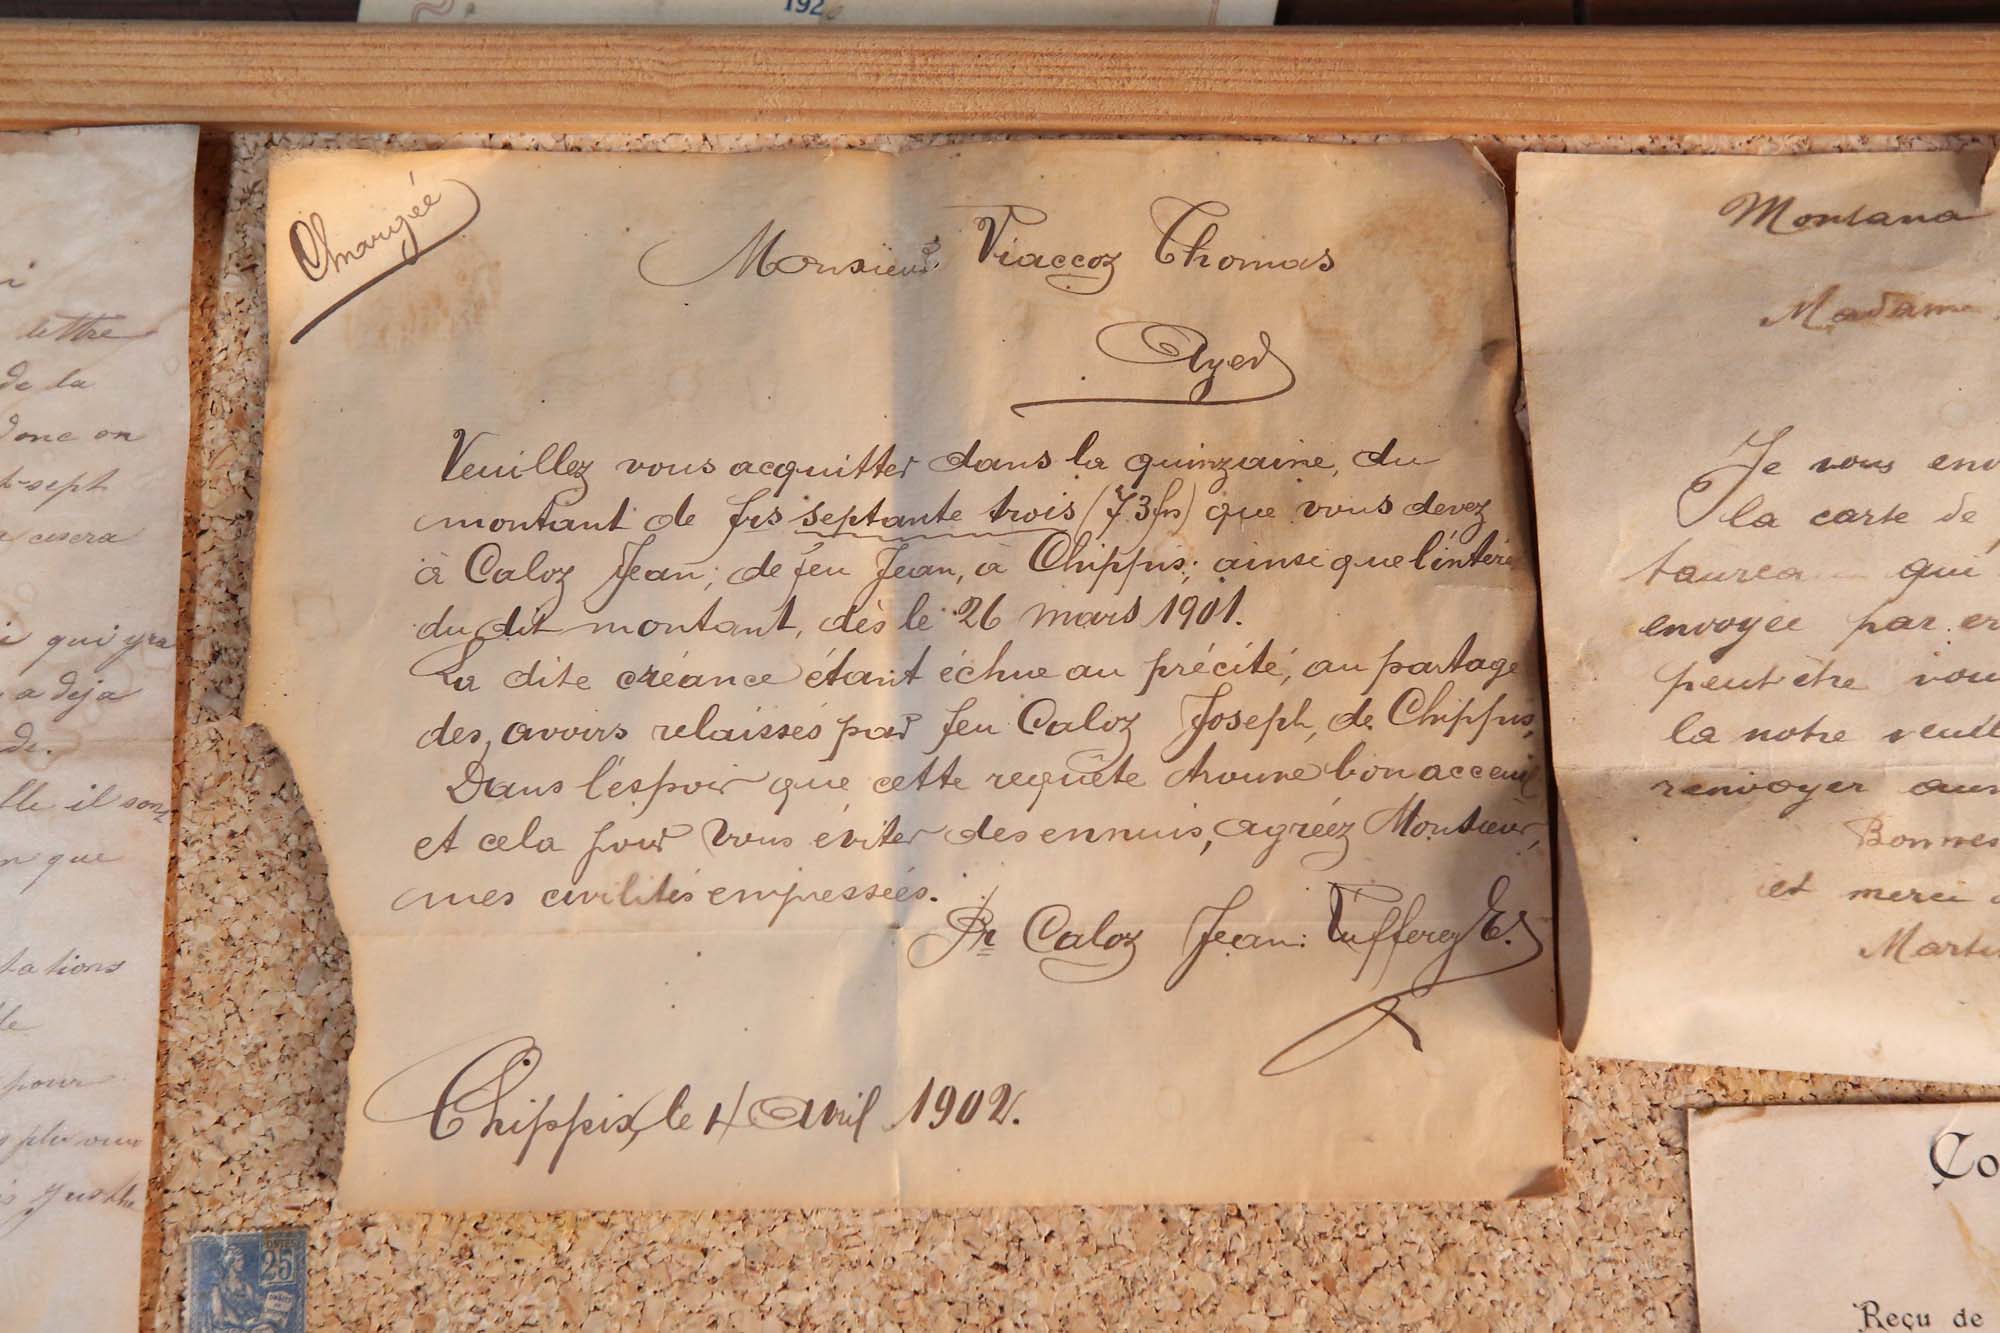 192
lettre
de la
donc on
sept
qui yra
a deja
de.
lle il sont
que
tations
pour
Chargée
Monsieur Viaccoz Thomas
Ayer
Veuillez vous acquitter dans la quinzaine, du
montant de frs septante trois (73 frs) que vous devez
à Caloz Jean, de feu Jean, à Chippis; ainsi que l'intérê
du dit montant, dès le 26 mars 1901.
La dite créance étant échue au précité, au partage
des avoirs relaissés par feu Caloz Joseph, de Chippis,
Dans l'espoir que cette requête trouve bon acceuil
et cela pour vous éviter des ennuis, agréez Monsieur,
mes civilités empressées.
Pr Caloz Jean: Tufferey E.
Chippis, le 4 Avril 1902.
Montana
Madame
Je vous env
la carte de
taureau qui
envoyée par er
peut être vou
la notre veuil
renvoyer
Bonnes
et merci
Marti
Co
Reçu de
25
POSTES